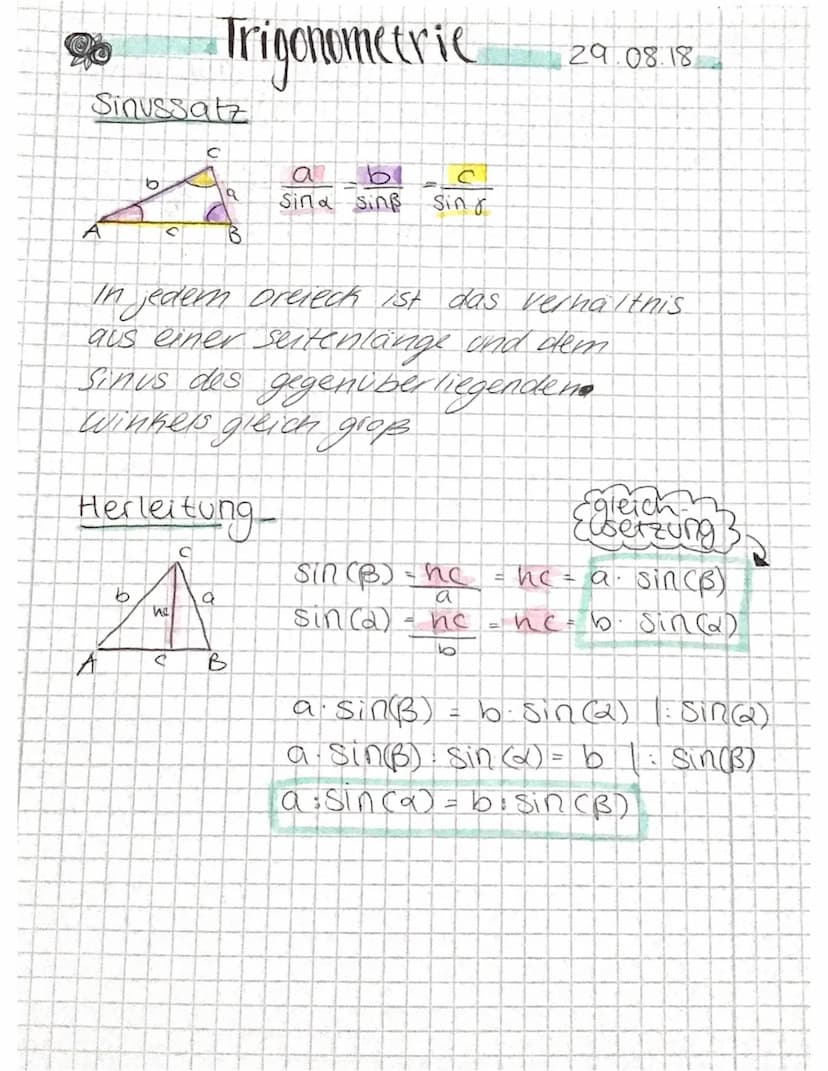 Trigonometrie 29.08.18
Sinussatz
C
b a
A c B
a/sinα = b/sinβ = c/sinγ
In jedem Dreieck ist das verhältnis
aus einer seitenlänge und dem
Sinus des gegenüberliegenden
Winkels gleich groß
Herleitung
gleich-
setzung
C
b hc a
A c B
sin(β) = hc/a = hc = a · sin(β)
sin(α) = hc/b = hc = b · sin(α)
a · sin(β) = b · sin(α) |: sin(α)
a · sin(β) : sin(α) = b |: sin(β)
a : sin(α) = b : sin(β)